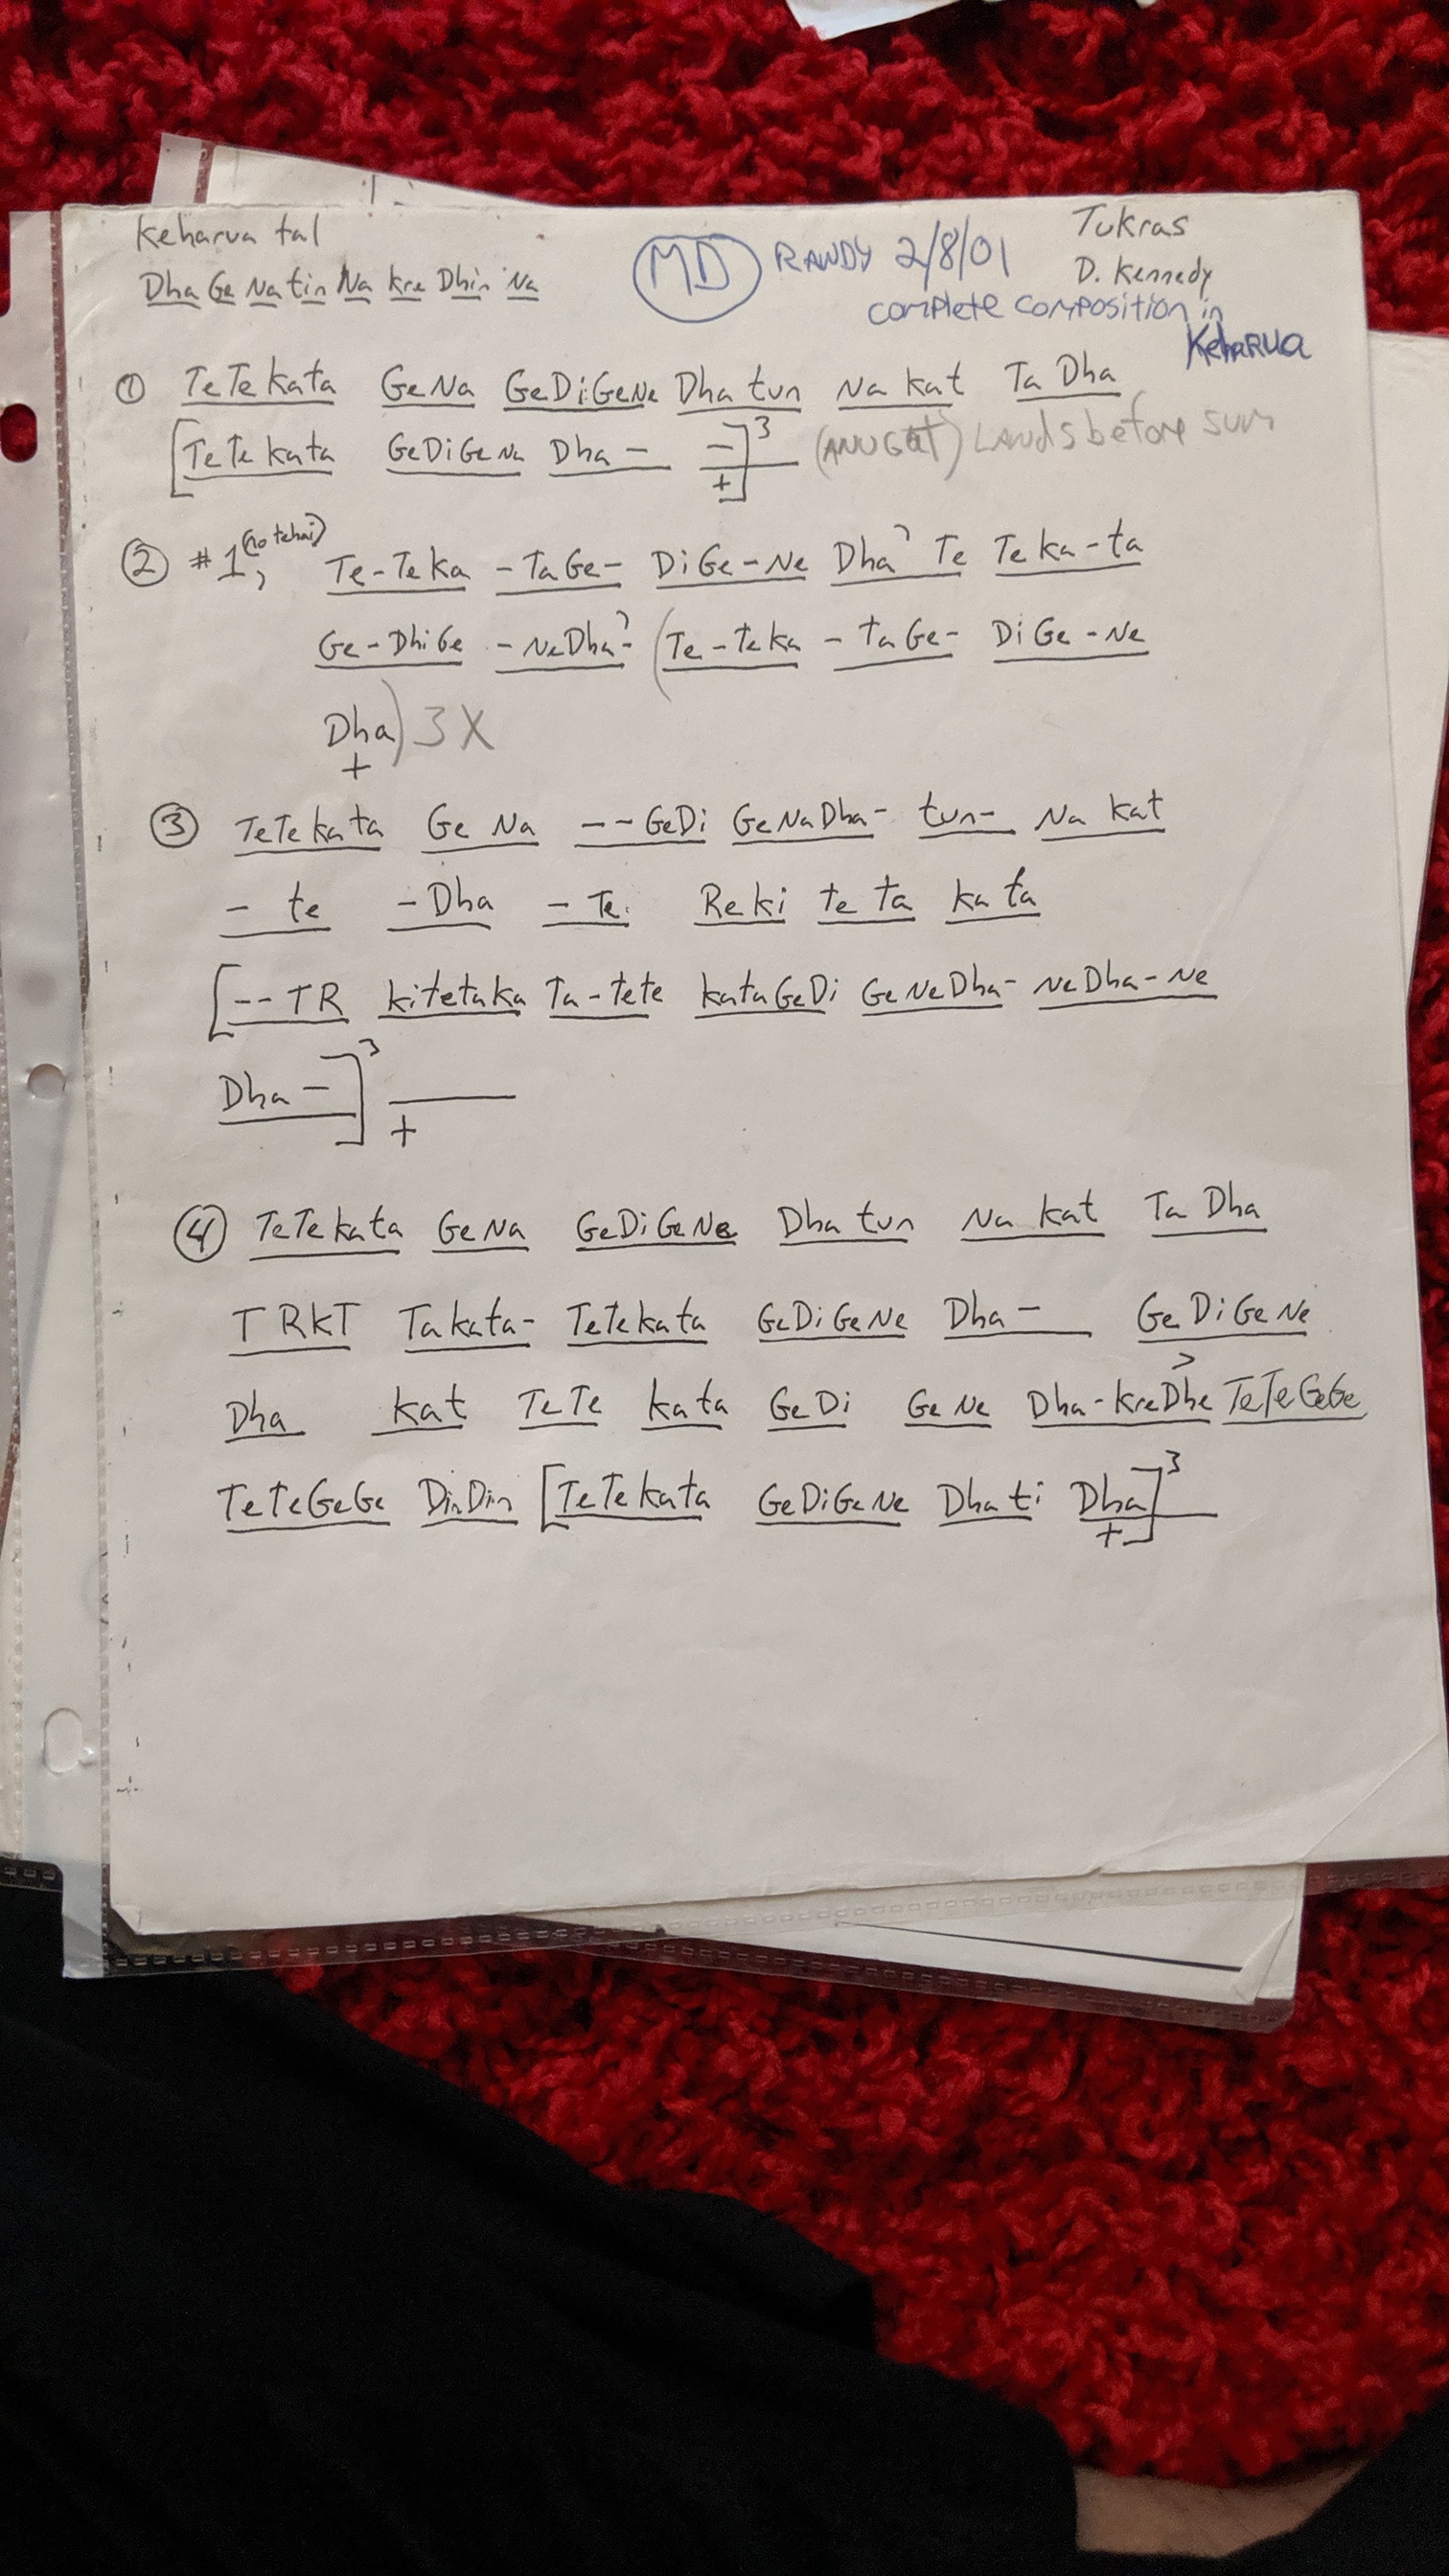 Keharua tal
Dha Ge Na tin Na kre Dhin Na
MD RANDY 2/8/01
Tukras
D. Kennedy
complete composition in
KehaRUA
① TeTekata GeNa GeDiGeNe Dha tun Na kat Ta Dha
[TeTekata GeDiGeNa Dha – –]3 (ANUGAT) LANDS before sum
+
② #1, (no tehai) Te-Teka -TaGe- DiGe-Ne Dha Te Teka-ta
Ge-DhiGe -NeDha- (Te-Teka -TaGe- DiGe-Ne
Dha) 3X
+
③ TeTekata Ge Na --GeDi GeNaDha- tun- Na kat
- te -Dha - Te Reki te ta ka ta
[--TR kitetaka Ta-tete kataGeDi GeNeDha- NeDha-Ne
Dha –]3
+
④ TeTekata GeNa GeDiGeNe Dha tun Na kat Ta Dha
TRkT Takata- TeTekata GeDiGeNe Dha – GeDiGeNe
Dha kat TeTe kata GeDi GeNe Dha-kreDhe TeTeGeGe
TeTeGeGe DinDin [TeTekata GeDiGeNe Dhati Dha]3
+